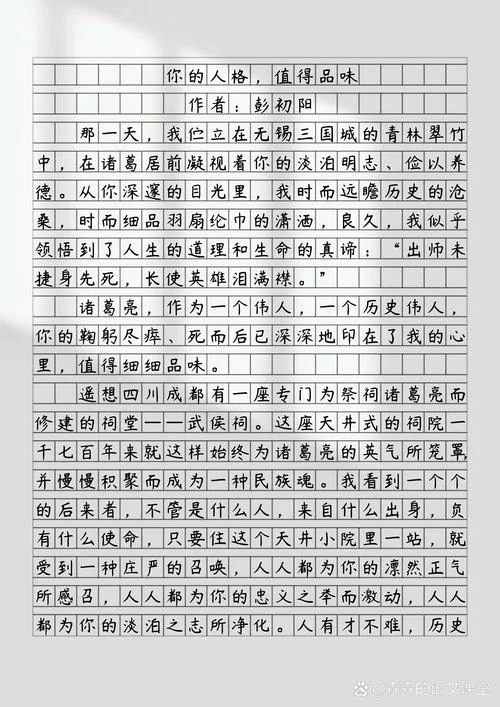 你的人格，值得品味
作者：彭初阳
那一天，我伫立在无锡三国城的青林翠竹
中，在诸葛居前凝视着你的淡泊明志、俭以养
德。从你深邃的目光里，我时而远瞻历史的沧
桑，时而细品羽扇纶巾的潇洒，良久，我似乎
领悟到了人生的道理和生命的真谛：“出师未
捷身先死，长使英雄泪满襟。”
诸葛亮，作为一个伟人，一个历史伟人，
你的鞠躬尽瘁、死而后已深深地印在了我的心
里，值得细细品味。
遥想四川成都有一座专门为祭祠诸葛亮而
修建的祠堂——武侯祠。这座天井式的祠院一
千七百年来就这样始终为诸葛亮的英气所笼罩，
并慢慢积聚而成为一种民族魂。我看到一个个
的后来者，不管是什么人，来自什么出身，负
有什么使命，只要住这个天井小院里一站，就
受到一种庄严的召唤，人人都为你的凛然正气
所感召，人人都为你的忠义之举而激动，人人
都为你的淡泊之志所净化。人有才不难，历史
@森森的语文课堂